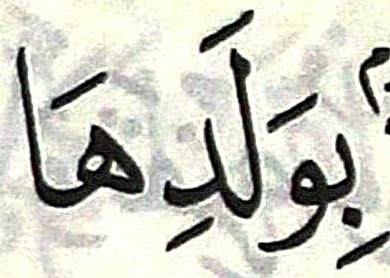 بِوَلَدِهَا